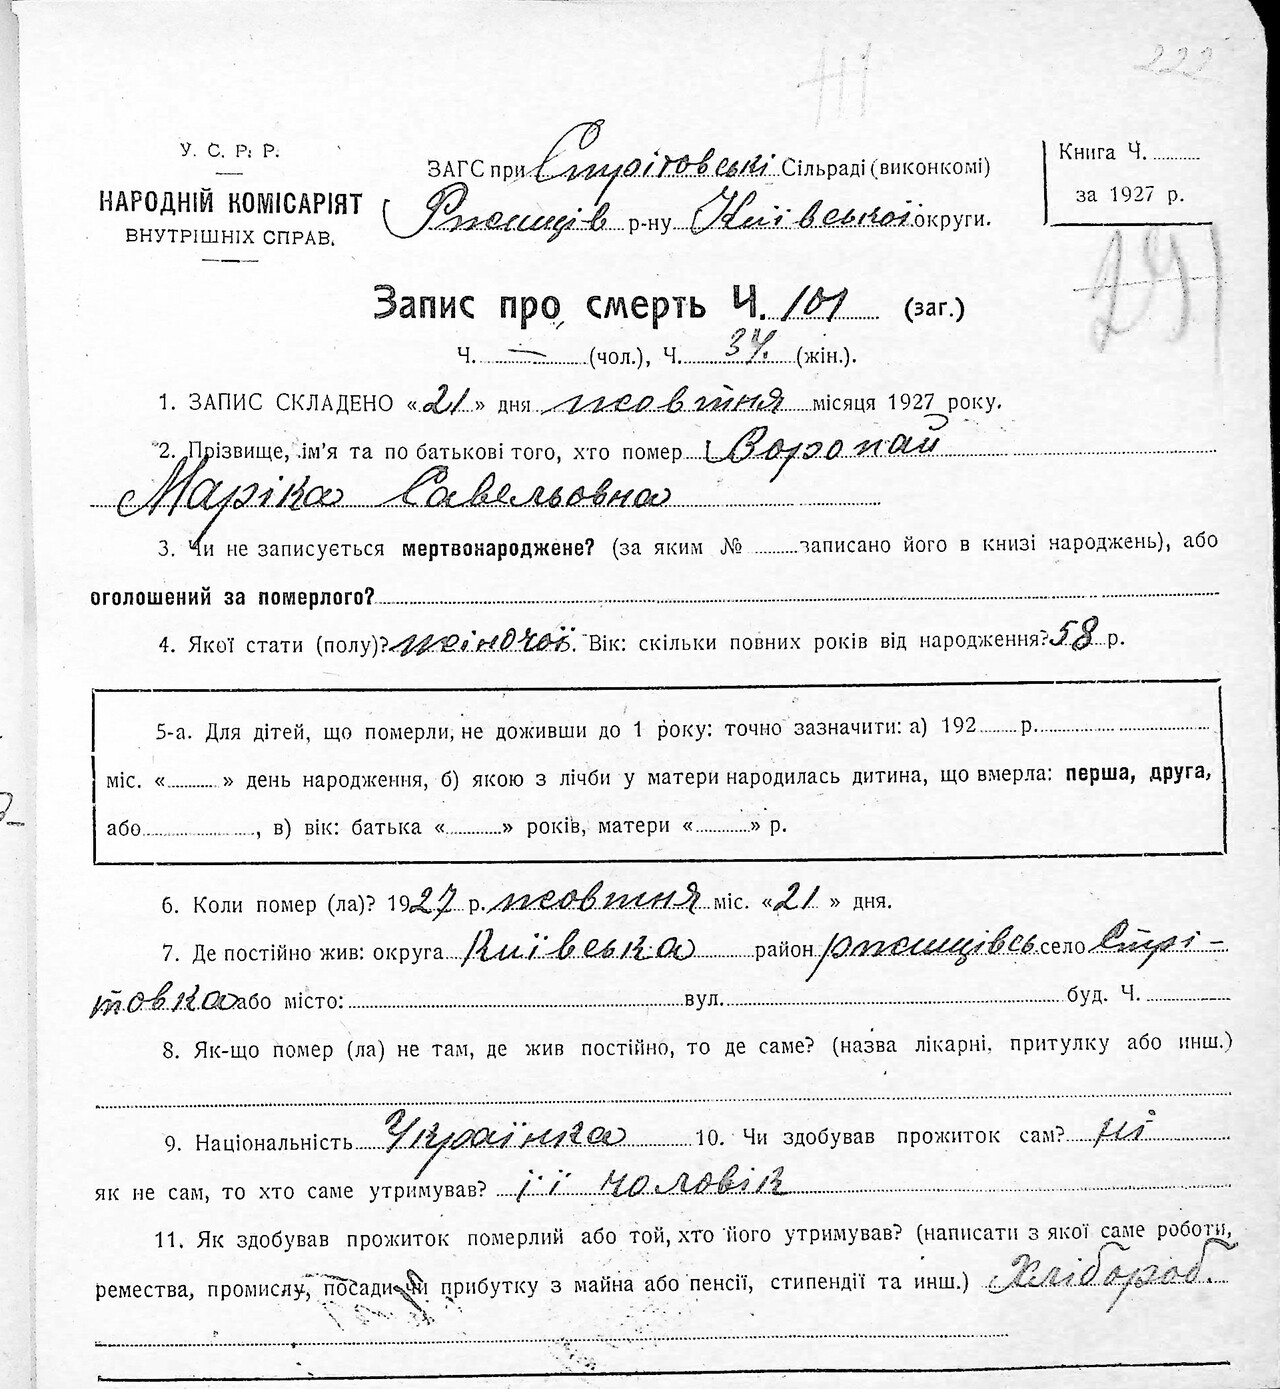 222
У. С. Р. Р.
НАРОДНІЙ КОМІСАРІЯТ
ВНУТРІШНІХ СПРАВ.
ЗАГС при Стрітовські Сільраді (виконкомі)
Ржищів р-ну Київської округи.
Книга Ч.
за 1927 р.
Запис про смерть Ч. 101 (заг.)
Ч. — (чол.), Ч. 34. (жін.).
1. ЗАПИС СКЛАДЕНО «21» дня жовтня місяця 1927 року.
2. Прізвище, ім'я та по батькові того, хто помер Воропай
Маріка Савельовна
3. Чи не записується мертвонароджене? (за яким № записано його в книзі народжень), або
оголошений за померлого?
4. Якої стати (полу)? жіночої. Вік: скільки повних років від народження? 58 р.
5-а. Для дітей, що померли, не доживши до 1 року: точно зазначити: а) 192 р.
міс. « » день народження, б) якою з лічби у матери народилась дитина, що вмерла: перша, друга,
або , в) вік: батька « » років, матери « » р.
6. Коли помер (ла)? 1927 р. жовтня міс. «21» дня.
7. Де постійно жив: округа Київська район ржищівсь село Стрі-
товка або місто: вул. буд. Ч.
8. Як-що помер (ла) не там, де жив постійно, то де саме? (назва лікарні, притулку або инш.)
9. Національність Українка 10. Чи здобував прожиток сам? ні
як не сам, то хто саме утримував? її чоловік
11. Як здобував прожиток померлий або той, хто його утримував? (написати з якої саме роботи,
ремества, промислу, посади чи прибутку з майна або пенсії, стипендії та инш.) Хлібороб.